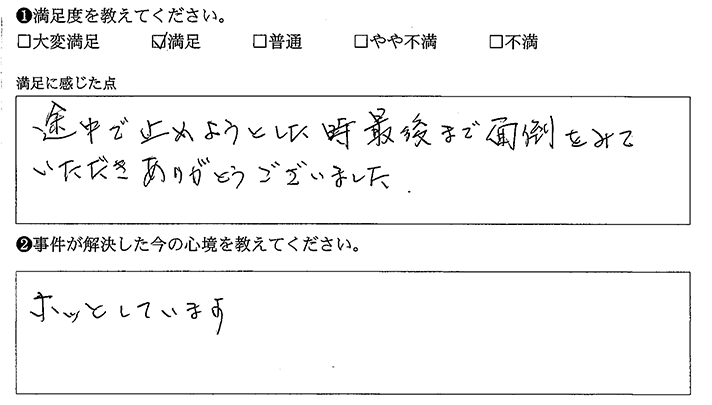 ❶満足度を教えてください。
□大変満足 ☑満足 □普通 □やや不満 □不満
満足に感じた点
途中で止めようとした時最後まで面倒をみて
いただきありがとうございました.
❷事件が解決した今の心境を教えてください。
ホッとしています